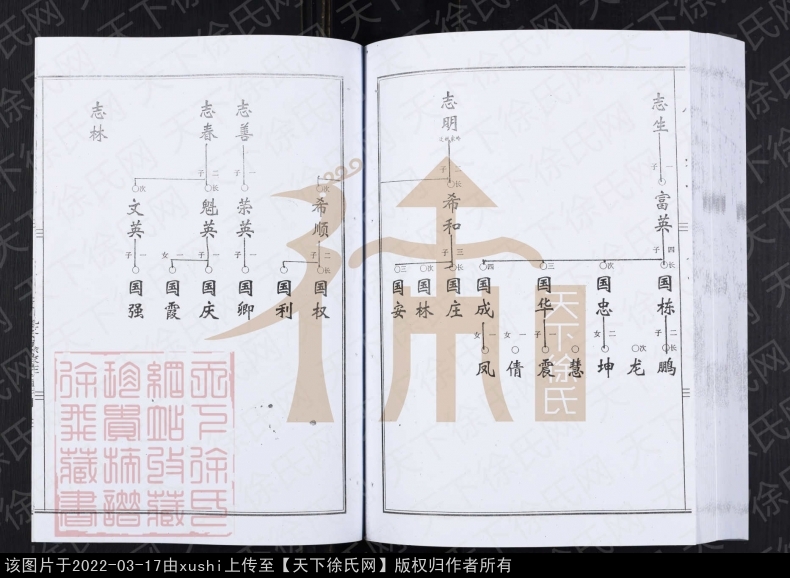 志生
一子
富英
四子
长
国栋
二子
长
鹏
次
龙
次
国忠
二女
坤
慧
三
国华
一子
震
一女
倩
四
国成
一女
凤
志明
二子
长
希和
三子
长
国庄
次
国林
三
国安
次
希顺
二子
长
国权
国利
志善
一子
荣英
一子
国卿
志春
二子
长
魁英
一子
国庆
一女
国霞
次
文英
一子
国强
志林
徐
天下徐氏
天下徐氏网
该图片于2022-03-17由xushi上传至【天下徐氏网】版权归作者所有